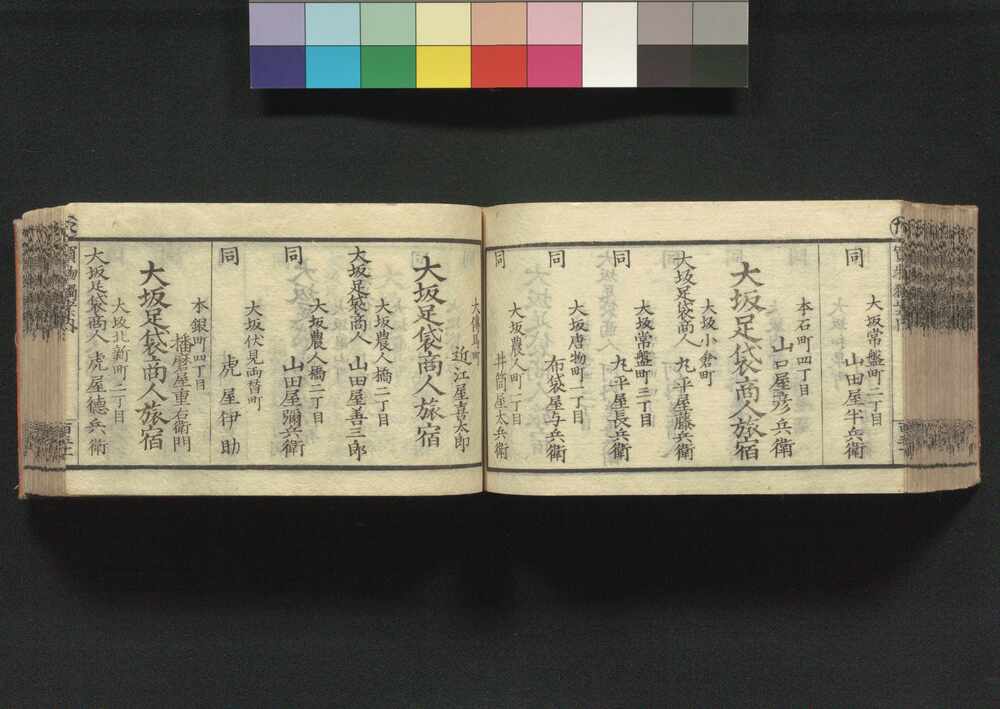 大坂常盤町二丁目
同 山田屋半兵衛
本石町四丁目
山口屋彦兵衛
大坂足袋商人旅宿
大坂小倉町
大坂足袋商人 九平屋藤兵衛
大坂常盤町三丁目
同 九平屋長兵衛
大坂唐物町二丁目
同 布袋屋与兵衛
大坂農人町一丁目
同 井筒屋太兵衛
大傳馬町
近江屋喜太郎
大坂足袋商人旅宿
大坂農人橋二丁目
大坂足袋商人 山田屋善三郎
大坂農人橋二丁目
同 山田屋彌兵衛
大坂伏見両替町
同 虎屋伊助
本銀町四丁目
播磨屋重右衛門
大坂足袋商人旅宿
大坂北新町二丁目
大坂足袋商人 虎屋徳兵衛